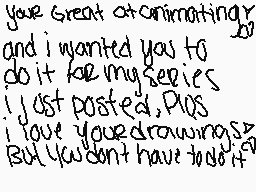 your Great at animating
and i wanted you to
do it for my series
i just posted, Plos
i love your drawings
But you dont have to do it